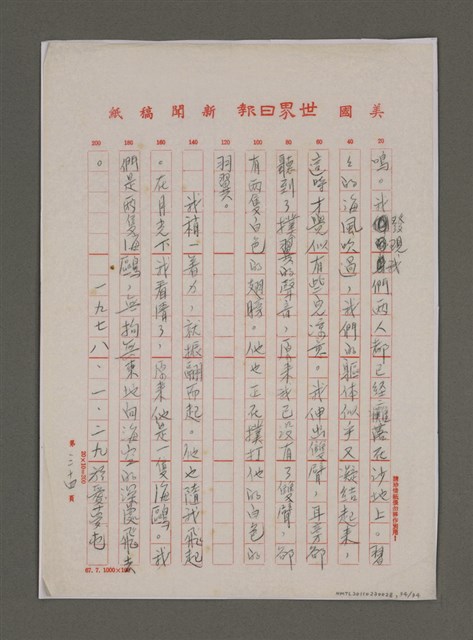 美國世界日報新聞稿紙
20
40
60
80
100
120
140
160
180
200
鳴。我發現我們兩人都已經癱落在沙地上。習
々的海風吹過，我們的軀体似乎又凝結起來，
這時才覺似有些兒涼意。我伸出雙臂，耳旁卻
聽到了撲翼的聲音，原來我已沒有了雙臂，卻
有兩隻白色的翅膀。他也正在撲打他的白色的
羽翼。
我稍一著力，就振翩而起。他也隨我飛起
。在月光下我看清了，原來他是一隻海鷗。我
們是兩隻海鷗，無拘無束地向海空的深處飛去
。　一九七八．一．二九於愛荷華
第二十四頁
20×10=200
67.7.1000×100